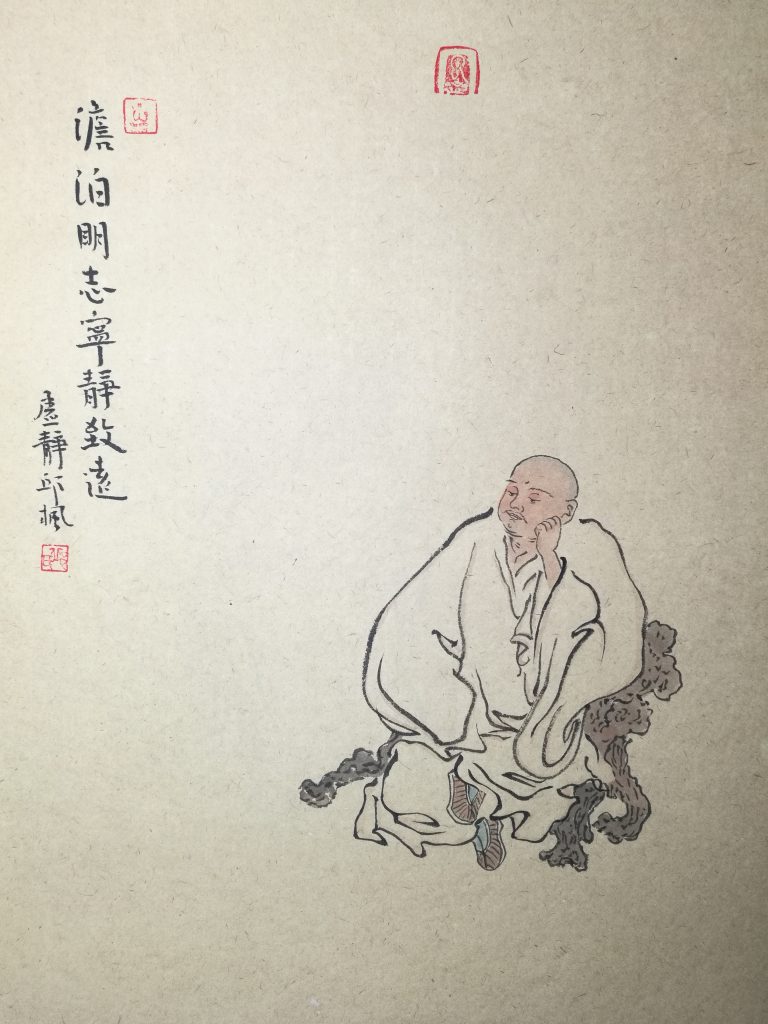 澹泊明志寧靜致遠
虛靜邱楓